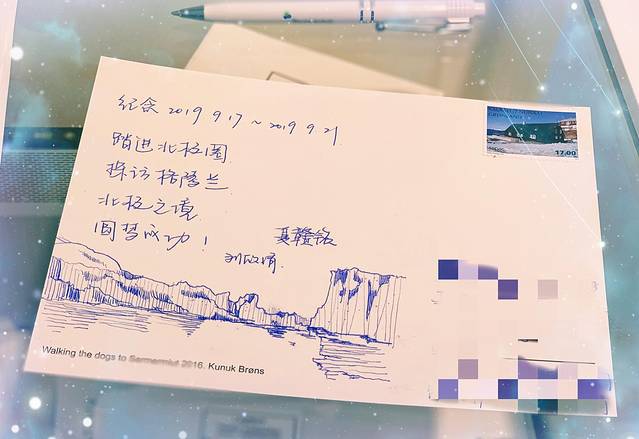 纪念 2019 9.17 ~ 2019 9.21
踏进北极圈
探访格陵兰
北极之境
圆梦成功！
17.00
Walking the dogs to Sermermiut 2016. Kunuk Brøns